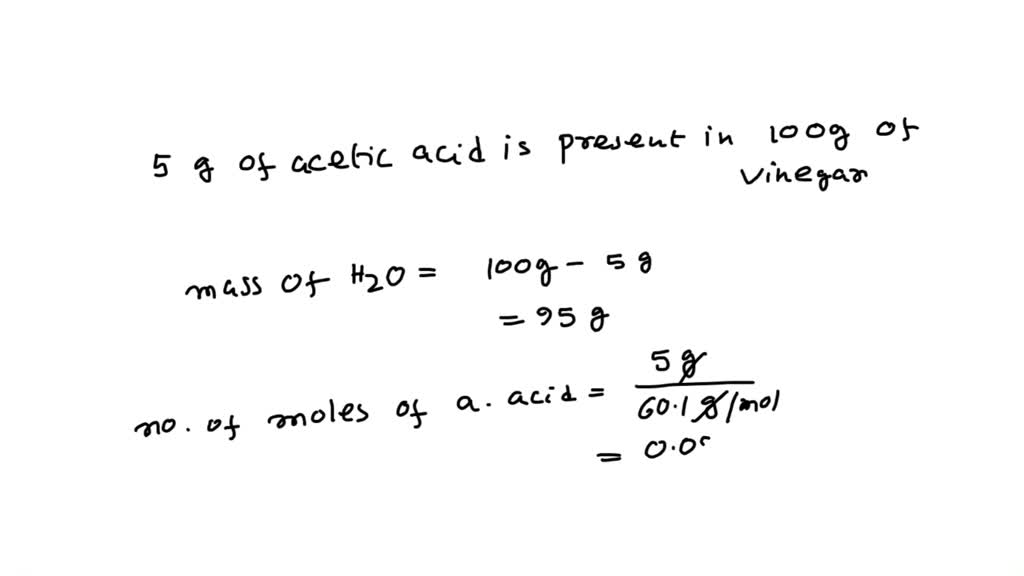 5 g of acetic acid is present in 100g of
vinegar
mass of H2O = 100g - 5 g
= 95 g
no. of moles of a. acid = 5 g / 60.1 g/mol
= 0.0